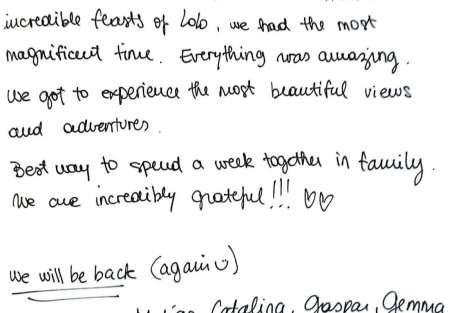 incredible feasts of Lobo, we had the most
magnificent time. Everything was amazing.
We got to experience the most beautiful views
and adventures.
Best way to spend a week together in family.
We are incredibly grateful!!! ♡♡
We will be back (again☺)
Catalina, Gaspar, Gemma